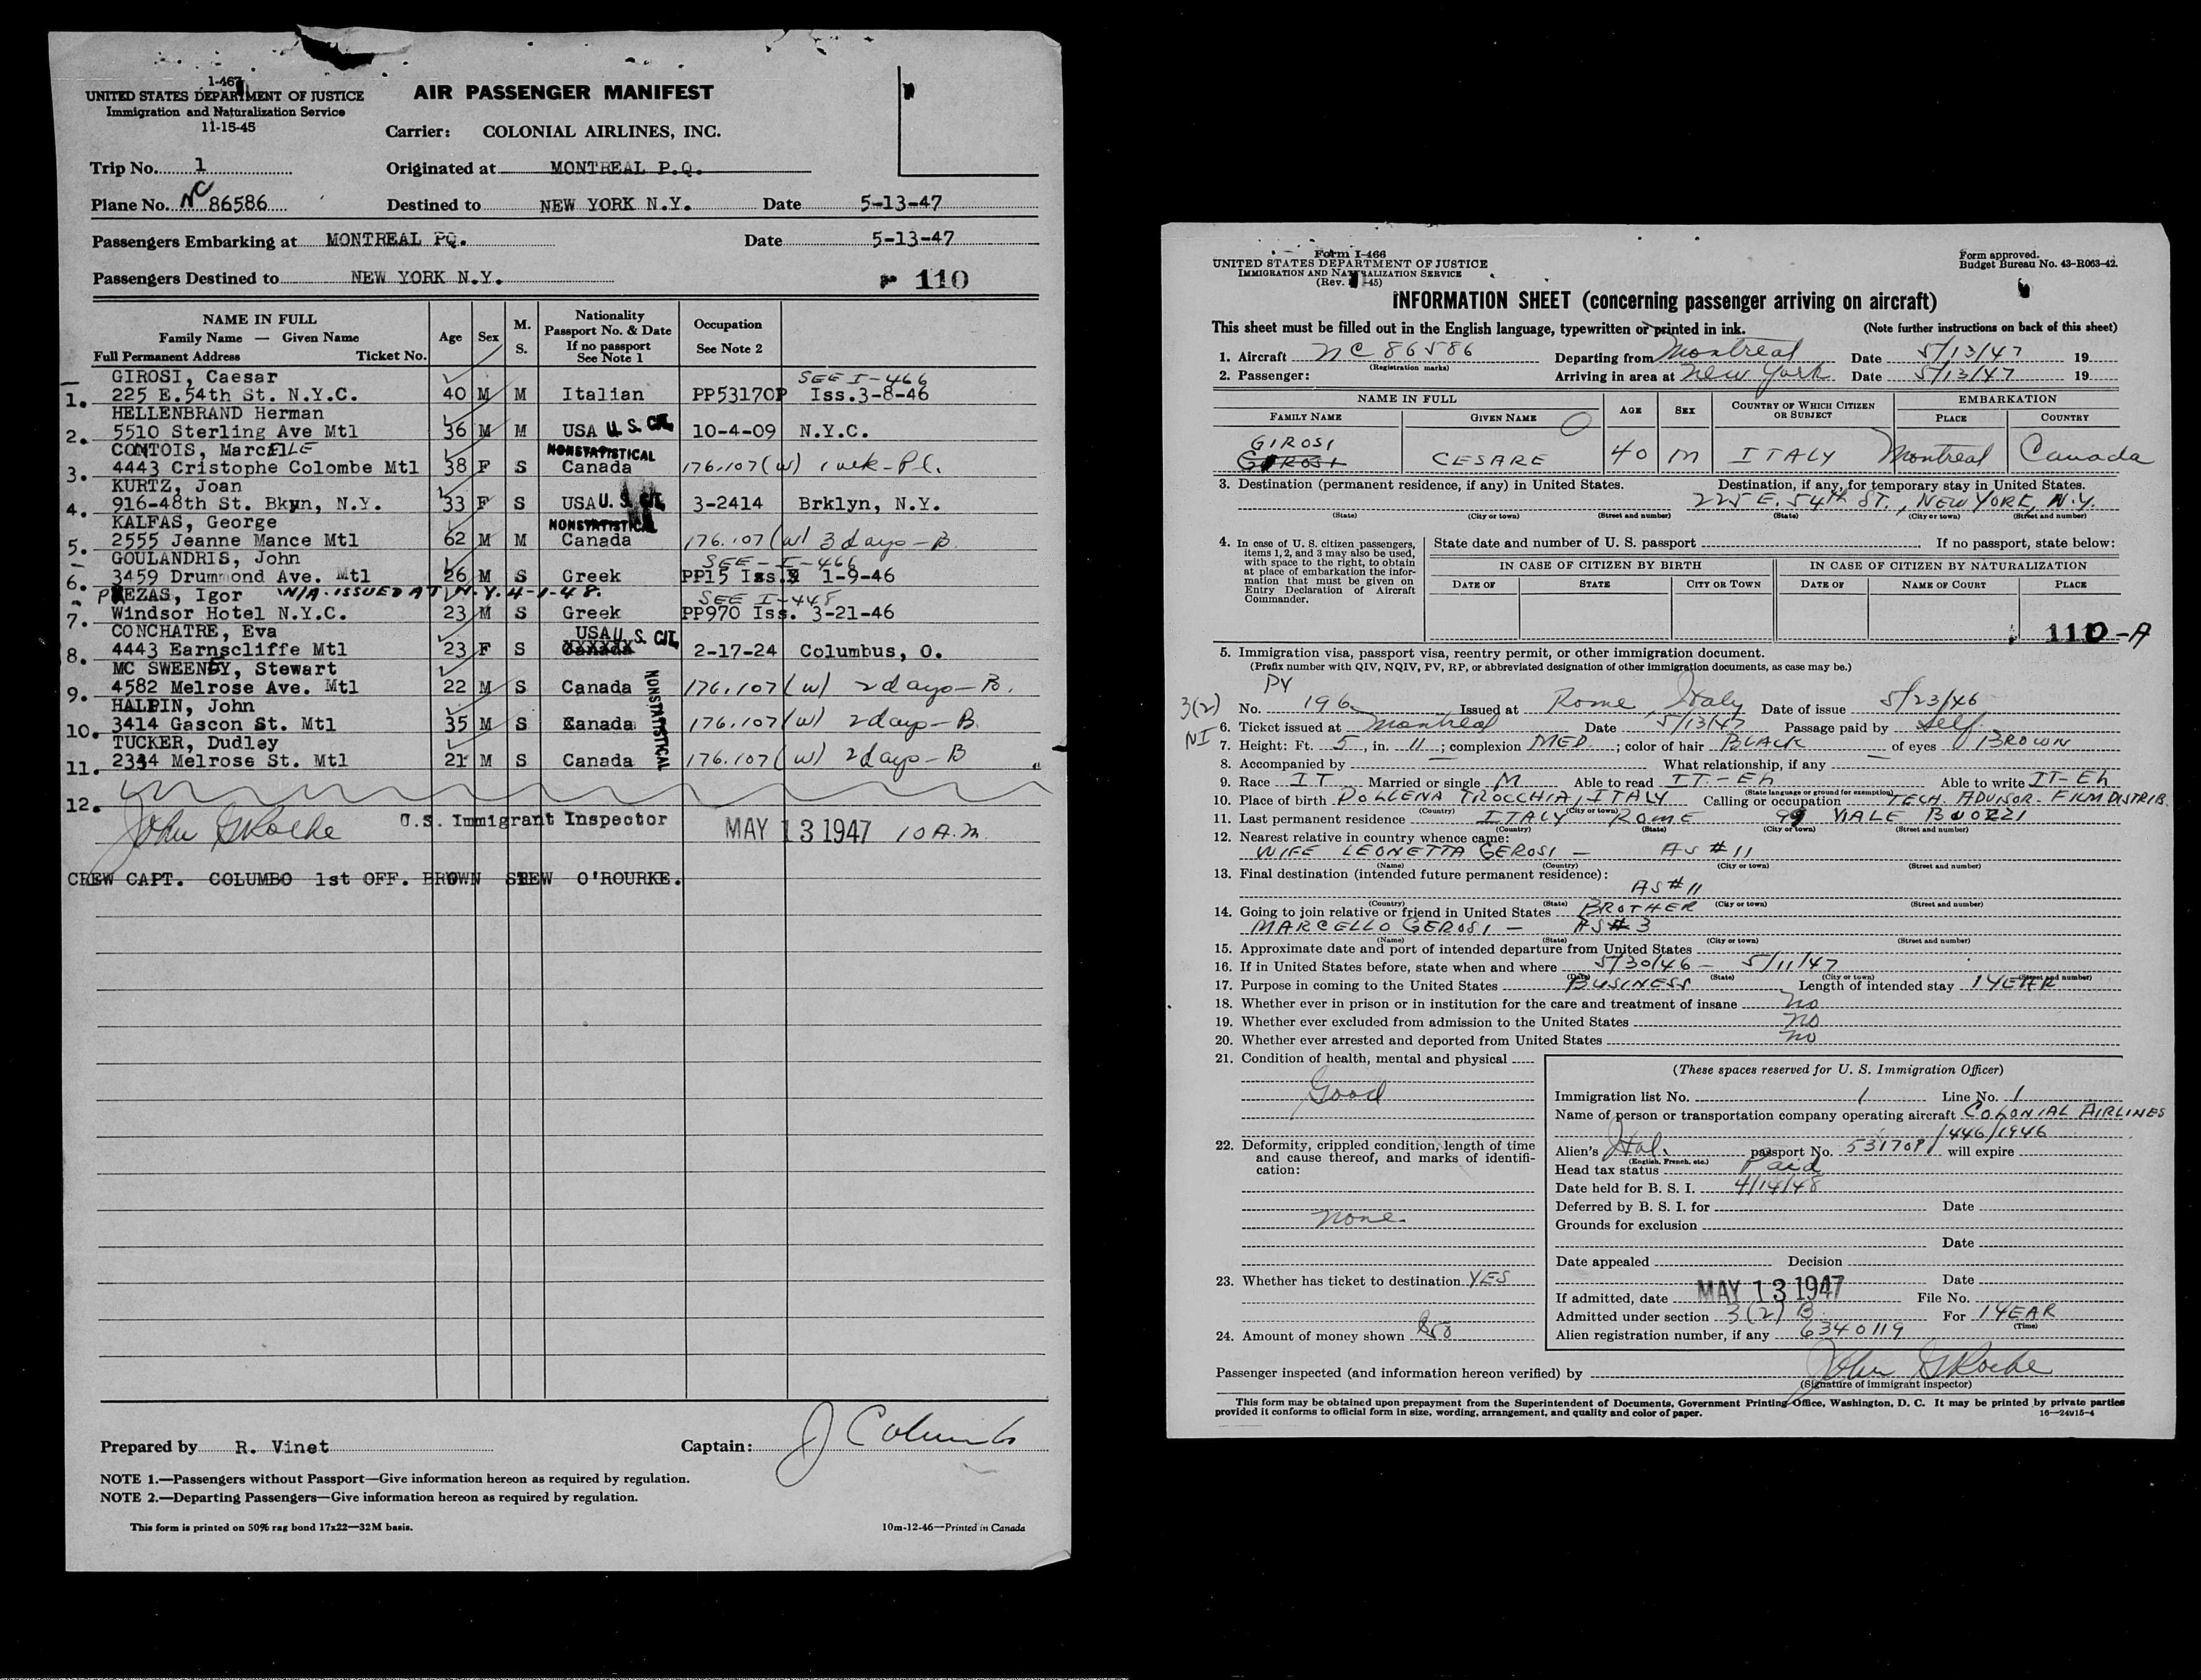 I-467
UNITED STATES DEPARTMENT OF JUSTICE
Immigration and Naturalization Service
11-15-45
AIR PASSENGER MANIFEST
Carrier: COLONIAL AIRLINES, INC.
Trip No. 1 Originated at MONTREAL P.Q.
Plane No. NC 86586 Destined to NEW YORK N.Y. Date 5-13-47
Passengers Embarking at MONTREAL PQ. Date 5-13-47
Passengers Destined to NEW YORK N.Y. 110
NAME IN FULL
Family Name — Given Name
Full Permanent Address Ticket No.
Age Sex M. S.
Nationality
Passport No. & Date
If no passport
See Note 1
Occupation
See Note 2
GIROSI, Caesar SEE I-466
1. 225 E.54th St. N.Y.C. 40 M M Italian PP53170P Iss.3-8-46
HELLENBRAND Herman
2. 5510 Sterling Ave Mtl 36 M M USA U. S. CIT. 10-4-09 N.Y.C.
CONTOIS, MarcELLE NONSTATISTICAL
3. 4443 Cristophe Colombe Mtl 38 F S Canada 176.107(w) 1 wk-Pl.
KURTZ, Joan
4. 916-48th St. Bkyn, N.Y. 33 F S USA U. S. CIT. 3-2414 Brklyn, N.Y.
KALFAS, George NONSTATISTICAL
5. 2555 Jeanne Mance Mtl 62 M M Canada 176.107(w) 3 days-B
GOULANDRIS, John SEE-I-466
6. 3459 Drummond Ave. Mtl 26 M S Greek PP15 Iss. 1-9-46
PEZAS, Igor W/A ISSUED AT N.Y. 4-1-48. SEE I-448
7. Windsor Hotel N.Y.C. 23 M S Greek PP970 Iss. 3-21-46
CONCHATRE, Eva USA U. S. CIT.
8. 4443 Earnscliffe Mtl 23 F S Canada 2-17-24 Columbus, O.
MC SWEENEY, Stewart
9. 4582 Melrose Ave. Mtl 22 M S Canada 176.107(w) 2 days-B.
HALPIN, John NONSTATISTICAL
10. 3414 Gascon St. Mtl 35 M S Canada 176.107(w) 2 days-B
TUCKER, Dudley
11. 2334 Melrose St. Mtl 21 M S Canada 176.107(w) 2 days-B
12.
John G Roche U.S. Immigrant Inspector MAY 13 1947 10 A.M.
CREW CAPT. COLUMBO 1st OFF. BROWN STEW O'ROURKE.
Prepared by R. Vinet Captain: J Columbo
NOTE 1.—Passengers without Passport—Give information hereon as required by regulation.
NOTE 2.—Departing Passengers—Give information hereon as required by regulation.
This form is printed on 50% rag bond 17x22—32M basis. 10m-12-46—Printed in Canada
Form I-466
UNITED STATES DEPARTMENT OF JUSTICE
IMMIGRATION AND NATURALIZATION SERVICE
(Rev. -45)
Form approved.
Budget Bureau No. 43-R063-42.
INFORMATION SHEET (concerning passenger arriving on aircraft)
This sheet must be filled out in the English language, typewritten or printed in ink. (Note further instructions on back of this sheet)
1. Aircraft NC 86586 Departing from Montreal Date 5/13/47 19
(Registration marks)
2. Passenger: Arriving in area at New York Date 5/13/47 19
NAME IN FULL AGE SEX COUNTRY OF WHICH CITIZEN OR SUBJECT EMBARKATION
FAMILY NAME GIVEN NAME PLACE COUNTRY
GIROSI
GEROSI CESARE 40 M ITALY Montreal Canada
3. Destination (permanent residence, if any) in United States. Destination, if any, for temporary stay in United States.
225 E. 54th ST., NEW YORK, N.Y.
(State) (City or town) (Street and number) (State) (City or town) (Street and number)
4. In case of U. S. citizen passengers, items 1, 2, and 3 may also be used, with space to the right, to obtain at place of embarkation the information that must be given on Entry Declaration of Aircraft Commander.
State date and number of U. S. passport If no passport, state below:
IN CASE OF CITIZEN BY BIRTH IN CASE OF CITIZEN BY NATURALIZATION
DATE OF STATE CITY OR TOWN DATE OF NAME OF COURT PLACE
110-A
5. Immigration visa, passport visa, reentry permit, or other immigration document.
(Prefix number with QIV, NQIV, PV, RP, or abbreviated designation of other immigration documents, as case may be.)
PV
3(2) No. 196 Issued at Rome, Italy Date of issue 5/23/46
NI 6. Ticket issued at Montreal Date 5/13/47 Passage paid by Self
7. Height: Ft. 5, in. 11; complexion MED.; color of hair BLACK of eyes BROWN
8. Accompanied by — What relationship, if any —
9. Race IT Married or single M Able to read IT.-Eh Able to write IT-Eh
(State language or ground for exemption)
10. Place of birth POLLENA TROCCHIA, ITALY Calling or occupation TECH. ADVISOR-FILM DISTRIB.
(Country) (City or town)
11. Last permanent residence ITALY ROME 99 VIALE BUOZZI
(Country) (State) (City or town) (Street and number)
12. Nearest relative in country whence came:
WIFE LEONETTA GEROSI - AS #11
(Name) (Country) (City or town) (Street and number)
13. Final destination (intended future permanent residence):
AS #11
(Country) (State) (City or town) (Street and number)
14. Going to join relative or friend in United States BROTHER
MARCELLO GEROSI - AS #3
(Name) (State) (City or town) (Street and number)
15. Approximate date and port of intended departure from United States
16. If in United States before, state when and where 5/30/46 - 5/11/47
(Date) (State) (City or town) (Street and number)
17. Purpose in coming to the United States BUSINESS Length of intended stay 1 YEAR
18. Whether ever in prison or in institution for the care and treatment of insane no
19. Whether ever excluded from admission to the United States no
20. Whether ever arrested and deported from United States no
21. Condition of health, mental and physical
Good
22. Deformity, crippled condition, length of time and cause thereof, and marks of identification:
none.
23. Whether has ticket to destination YES
24. Amount of money shown $50
(These spaces reserved for U. S. Immigration Officer)
Immigration list No. 1 Line No. 1
Name of person or transportation company operating aircraft COLONIAL AIRLINES
/446/1946
Alien's Ital. passport No. 53170P will expire
(English, French, etc.)
Head tax status Paid
Date held for B. S. I. 4/14/48
Deferred by B. S. I. for Date
Grounds for exclusion
Date
Date appealed Decision
Date
If admitted, date MAY 13 1947 File No.
Admitted under section 3(2) B For 1 YEAR
(Time)
Alien registration number, if any 6340119
Passenger inspected (and information hereon verified) by John G Roche
(Signature of immigrant inspector)
This form may be obtained upon prepayment from the Superintendent of Documents, Government Printing Office, Washington, D. C. It may be printed by private parties
provided it conforms to official form in size, wording, arrangement, and quality and color of paper. 16—24915-4